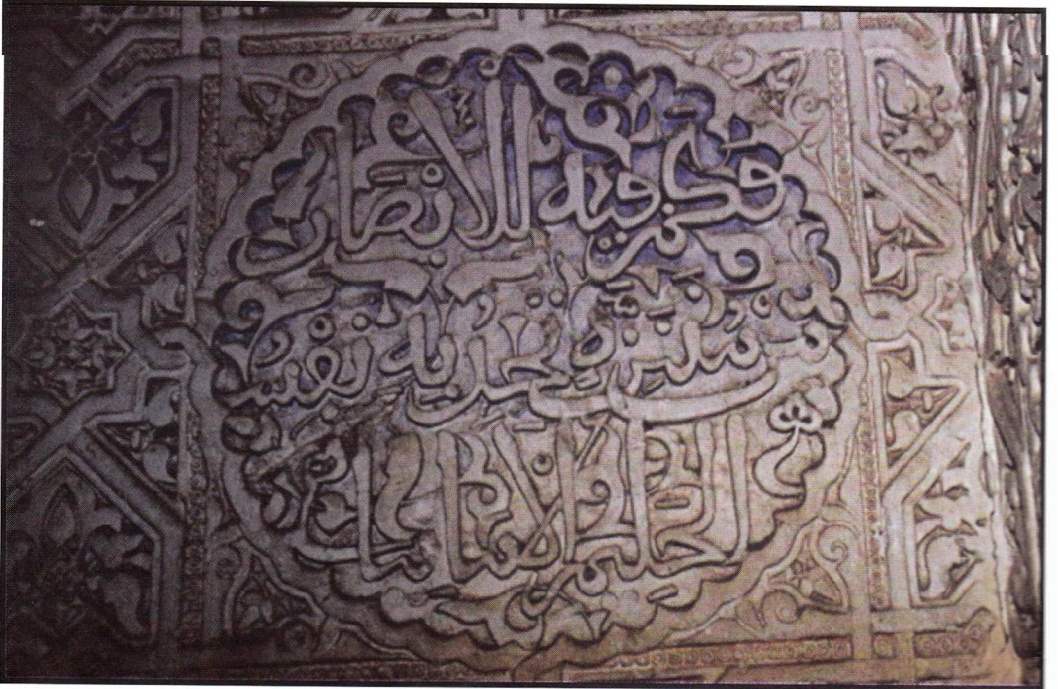 فكم فيه للأبصار
من متنزه تجد به نفس
الحليم الأمانيا